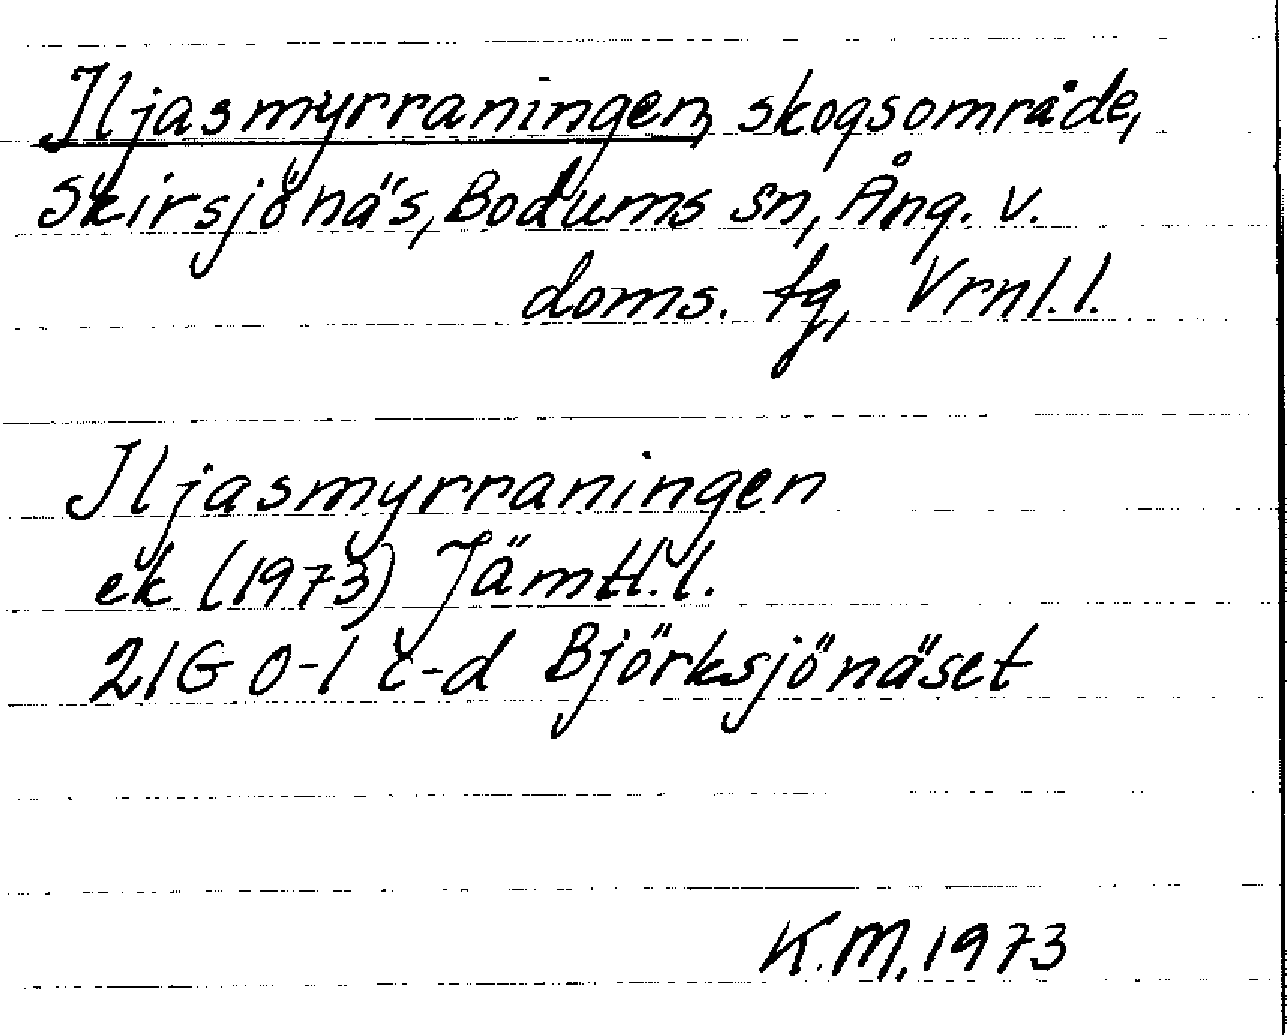 Iljasmyrraningen, skogsområde,
Skirsjönäs, Bodums sn, Ång. v.
doms. tg, Vrnl.l.
Iljasmyrraningen
ek (1973) Jämtl.l.
21G 0-1 c-d Björksjönäset
K.M. 1973